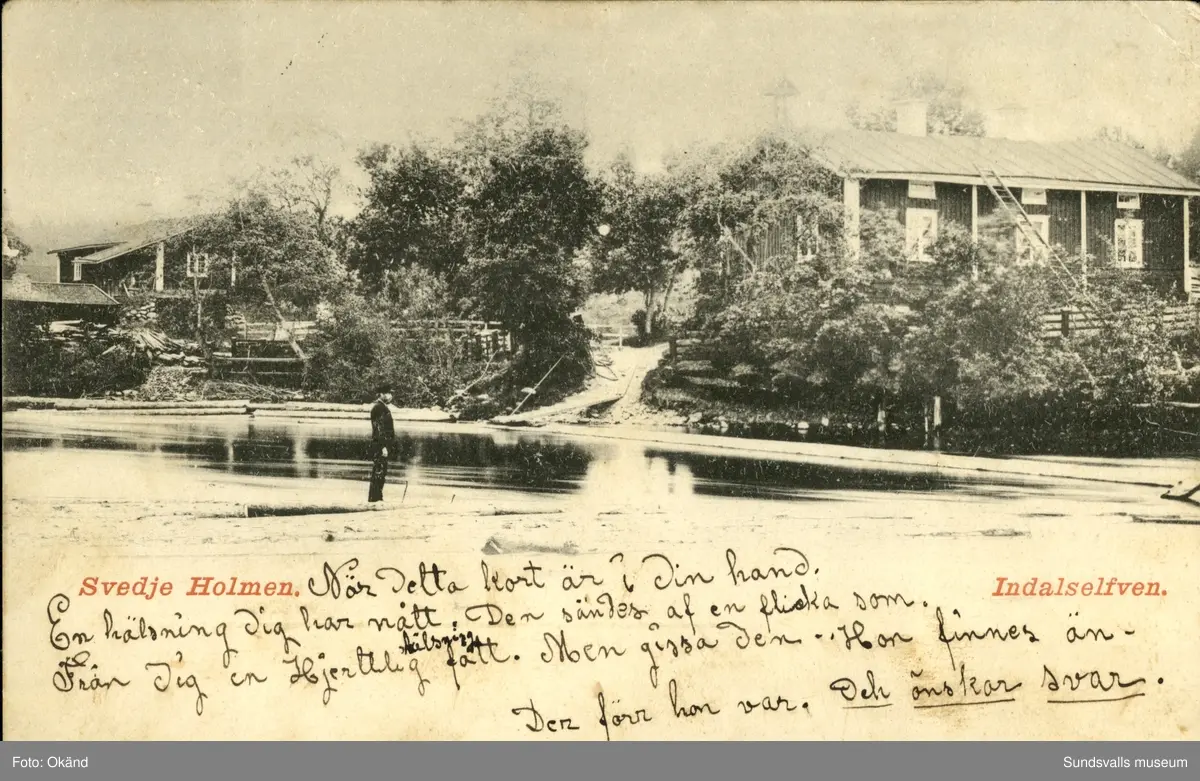 Svedje Holmen. När detta kort är i Din hand. Indalselfven.
En hälsning dig har nått. Den sändes af en fliska som.
Från dig en Hjertlig hälsning fått. Men gissa den - Hon finnes än-
Der förr hon var. Och önskar svar.
Foto: Okänd
Sundsvalls museum